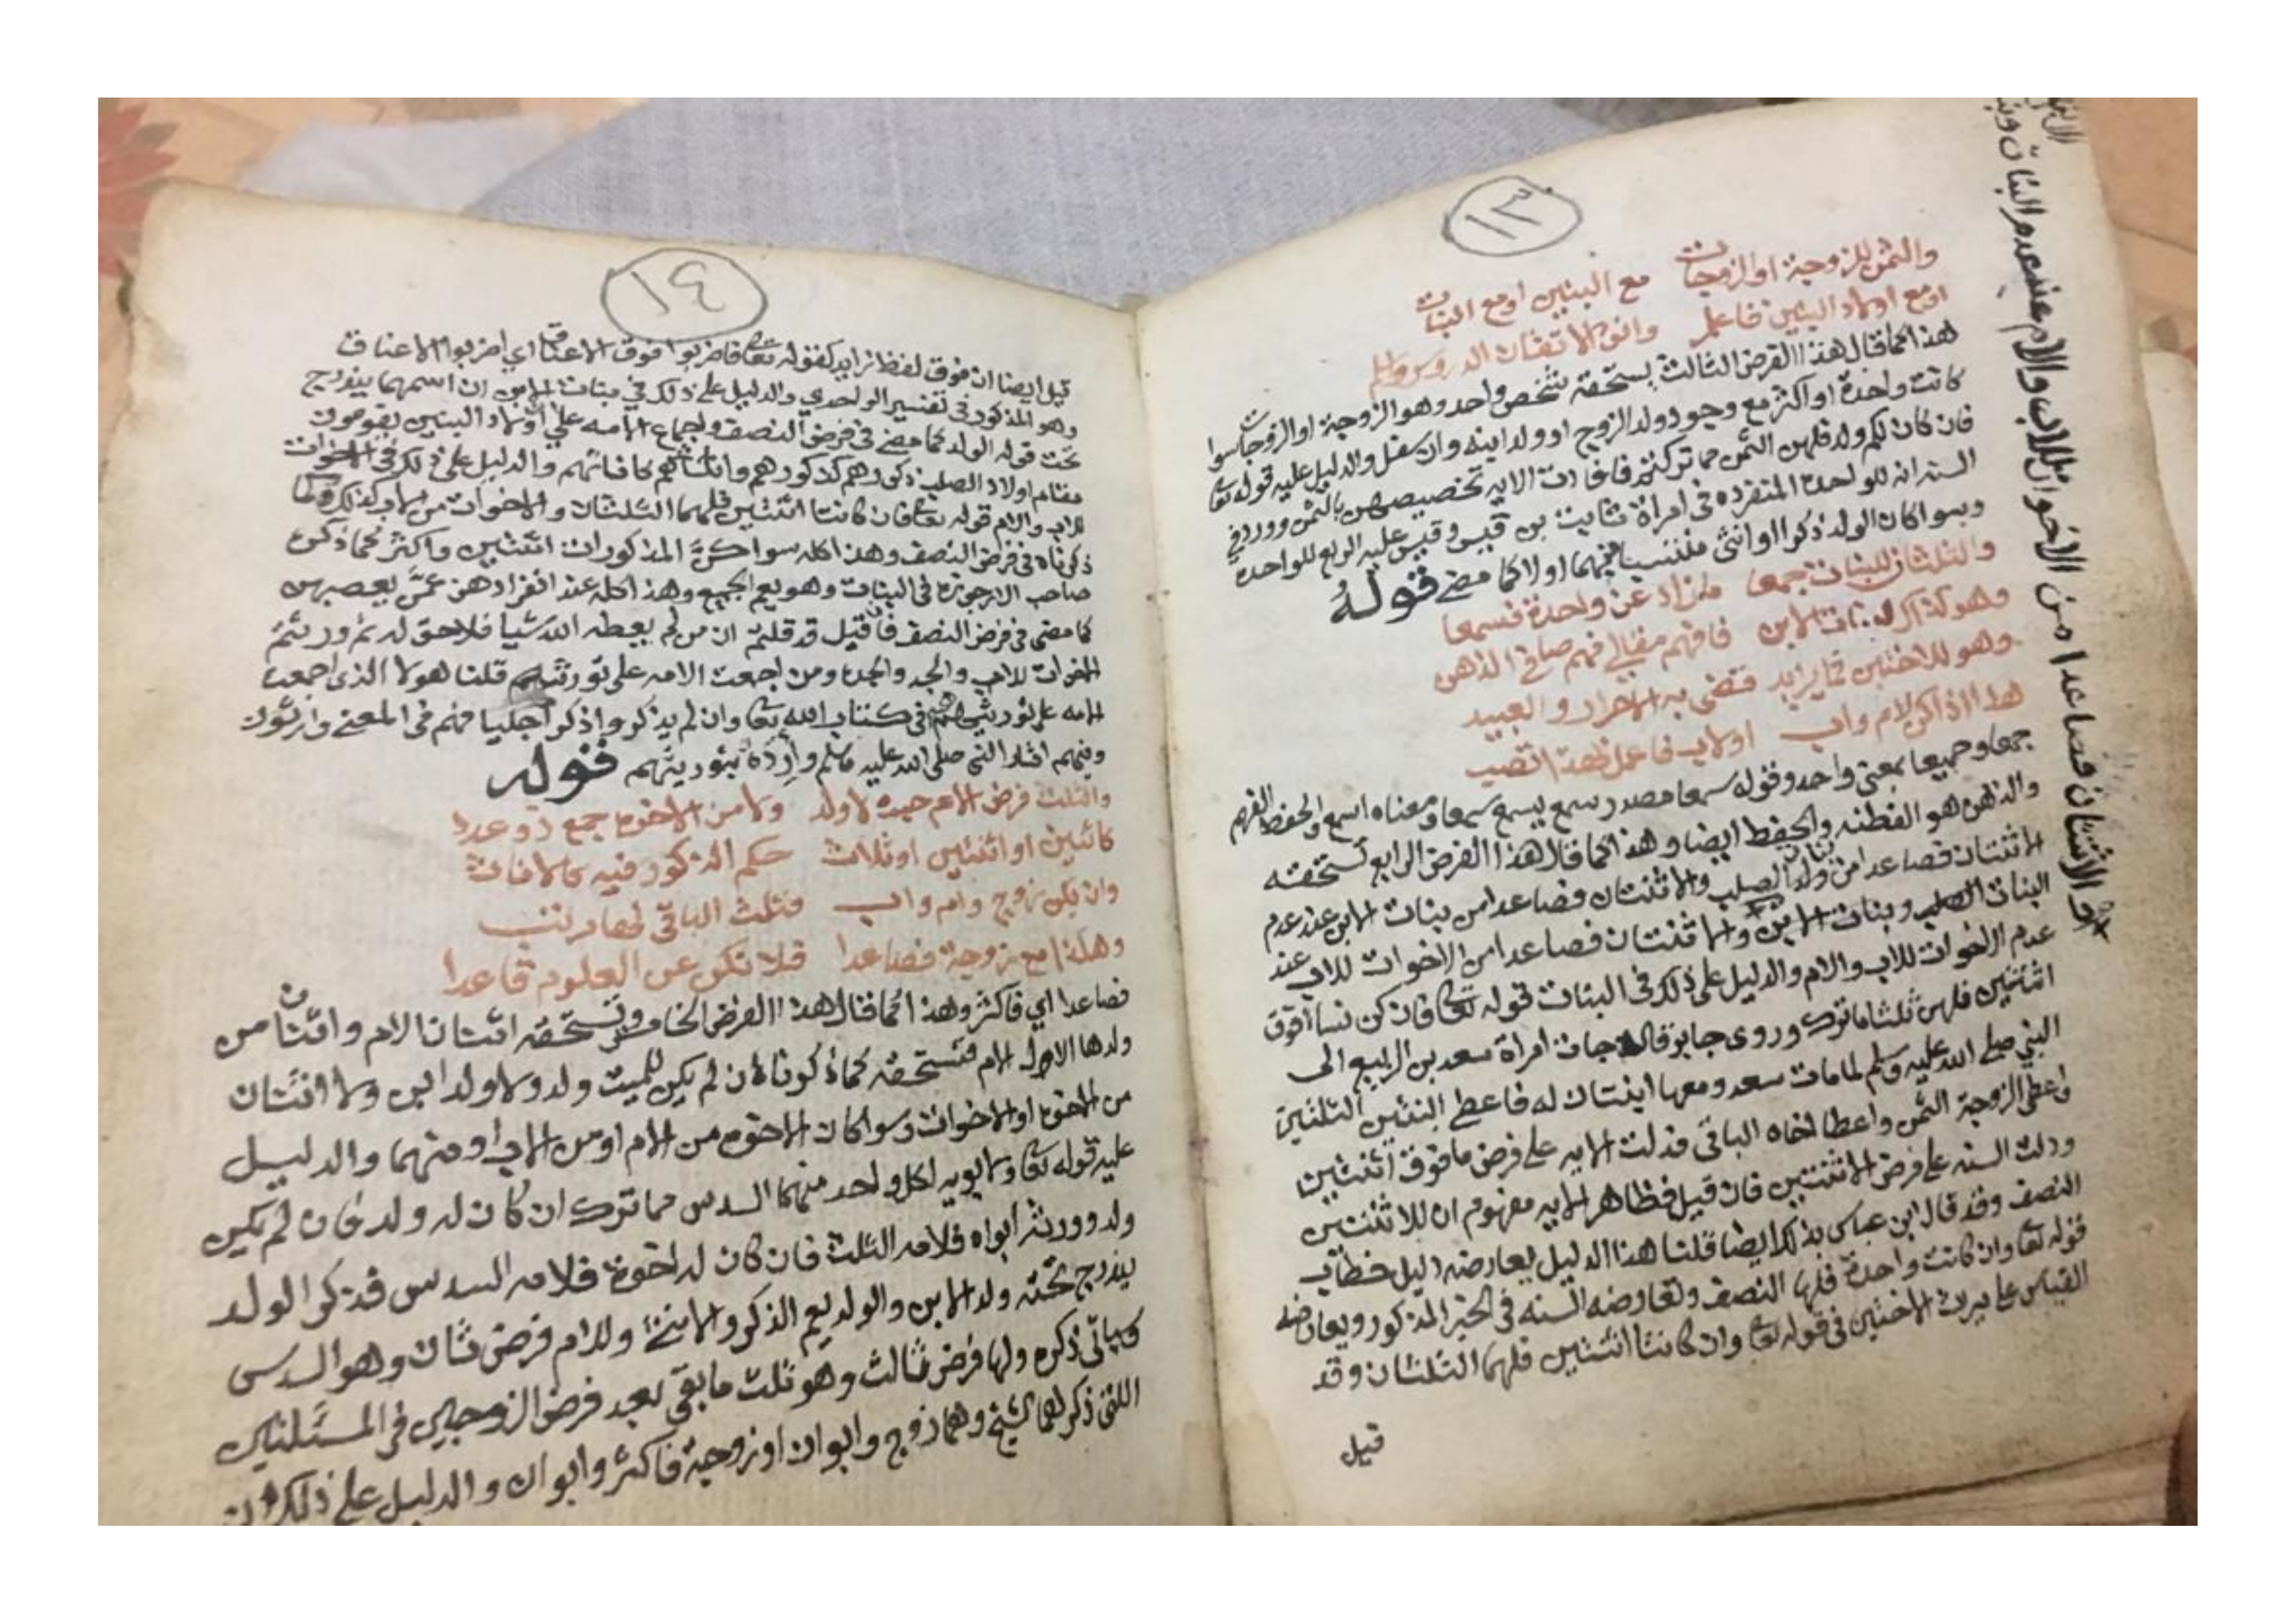 ١٣
والثمن للزوجة او الزوجات مع البنين او مع البنات
او مع اولاد البنين فاعلم واتق الاتقان الدروس وافهم
هذا كما قال هذا الفرض الثالث يستحقه شخص واحد وهو الزوجة او الزوجات سوا
كانت واحدة او اكثر مع وجود ولد الزوج او ولد ابنه وان سفل والدليل عليه قوله تعا
فان كان لكم ولد فلهن الثمن مما تركتم فافادت الايه تخصيصهن بالثمن وورد في
السنه انه للواحدة المنفرده في امراة ثابت بن قيس وقيس عليه الربع للواحدة
وسوا كان الولد ذكرا او انثى منتسبا اولا كما مضى قوله
والثلثان للبنات جمعا ما زاد عن واحدة فسمعا
وهو كذاك لبنات الابن فافهم مقالي فهم صافي الذهن
وهو للاختين فما يزيد قضى به الاحرار والعبيد
هذا اذا كن لام واب او لاب فاعمل بهذا تصب
جمعا وجميعا بمعنى واحد وقوله سمعا مصدر سمع يسمع سمعا ومعناه اسمع واحفظ الفهم
والذهن هو الفطنه والحفظ ايضا وهذا كما قال هذا الفرض الرابع تستحقه
الاثنتان فصاعدا من بنات ولد الصلب والاثنتان فصاعدا من بنات الابن عند عدم
البنات الصلب وبنات الابن والاثنتان فصاعدا من الاخوات للاب عند
عدم الاخوات للاب والام والدليل على ذلك في البنات قوله تعا فان كن نسا فوق
اثنتين فلهن ثلثا ما ترك وروى جابر قال جات امراة سعد بن الربيع الى
النبي صلى الله عليه وسلم لما مات سعد ومعها ابنتان له فاعطى البنتين الثلثين
واعطى الزوجة الثمن واعطا اخاه الباقي فدلت الايه على فرض ما فوق اثنتين
ودلت السنه على فرض الاثنتين فان قيل فظاهر الايه مفهوم ان للاثنتين
النصف وقد قال ابن عباس بذلك ايضا قلنا هذا الدليل يعارضه دليل خطاب
قوله تعا وان كانت واحدة فلها النصف وتعارضه السنه في الخبر المذكور ويعارضه
القياس على ميراث الاختين في قوله تعا وان كانتا اثنتين فلهما الثلثان وقد
قيل
والاثنتان فصاعدا من الاخوات للاب والام عند عدم البنات وبنات
١٤
قيل ايضا ان فوق لفظ زايد كقوله تعا فاضربوا فوق الاعناق اي اضربوا الاعناق
وهو المذكور في تفسير الواحدي والدليل على ذلك في بنات الابن ان اسمهما يندرج
تحت قوله الولد كما مضى في فرض النصف واجماع الامه على ان اولاد البنين يقومون
مقام اولاد الصلب ذكورهم كذكورهم واناثهم كاناثهم والدليل على ذلك في الاخوات
للاب والام قوله تعا فان كانتا اثنتين فلهما الثلثان والاخوات من الاب كذلك وقد
ذكرناه في فرض النصف وهذا كله سوا كن المذكورات اثنتين او اكثر كما ذكره
صاحب الارجوزة في البنات وهو يعم الجميع وهذا كله عند انفرادهن عمن يعصبهن
كما مضى في فرض النصف فان قيل قد قلتم ان من لم يعطه الله شيا فلا حق له ثم ورثتم
الاخوات للاب والجد والجدة ومن اجمعت الامه على توريثهم قلنا هولا الذي اجمعت
الامه على توريثهم هم في كتاب الله تعا وان لم يذكروا ذكرا جليا فهم في المعنى وارثون
وفيهم اشار النبي صلى الله عليه وسلم واراده بتوريثهم قوله
والثلث فرض الام حيث لا ولد ولا من الاخوة جمع ذو عدد
كاثنين او اثنتين او ثلاث حكم الذكور فيه كالاناث
وان يكن زوج وام واب فثلث الباقي لها مرتب
وهكذا مع زوجة فصاعدا فلا تكن عن العلوم قاعدا
فصاعدا اي فاكثر وهذا كما قال هذا الفرض الخامس وتستحقه اثنتان الام واثنتان من
ولدها الاول الام فتستحقه كما ذكرنا ان لم يكن للميت ولد ولا ولد ابن ولا اثنتان
من الاخوة او الاخوات وسوا كان الاخوة من الام او من الاب او منهما والدليل
عليه قوله تعا ولابويه لكل واحد منهما السدس مما ترك ان كان له ولد فان لم يكن
ولد وورثه ابواه فلامه الثلث فان كان له اخوة فلامه السدس فذكر الولد
يندرج تحته ولد الابن والولد يعم الذكر والانثى وللام فرض ثان وهو السدس
وياتي ذكره ولها فرض ثالث وهو ثلث ما بقي بعد فرض الزوجين في المسئلتين
اللتي ذكرهما الشيخ وهما زوج وابوان او زوجة فاكثر وابوان والدليل على ذلك ان